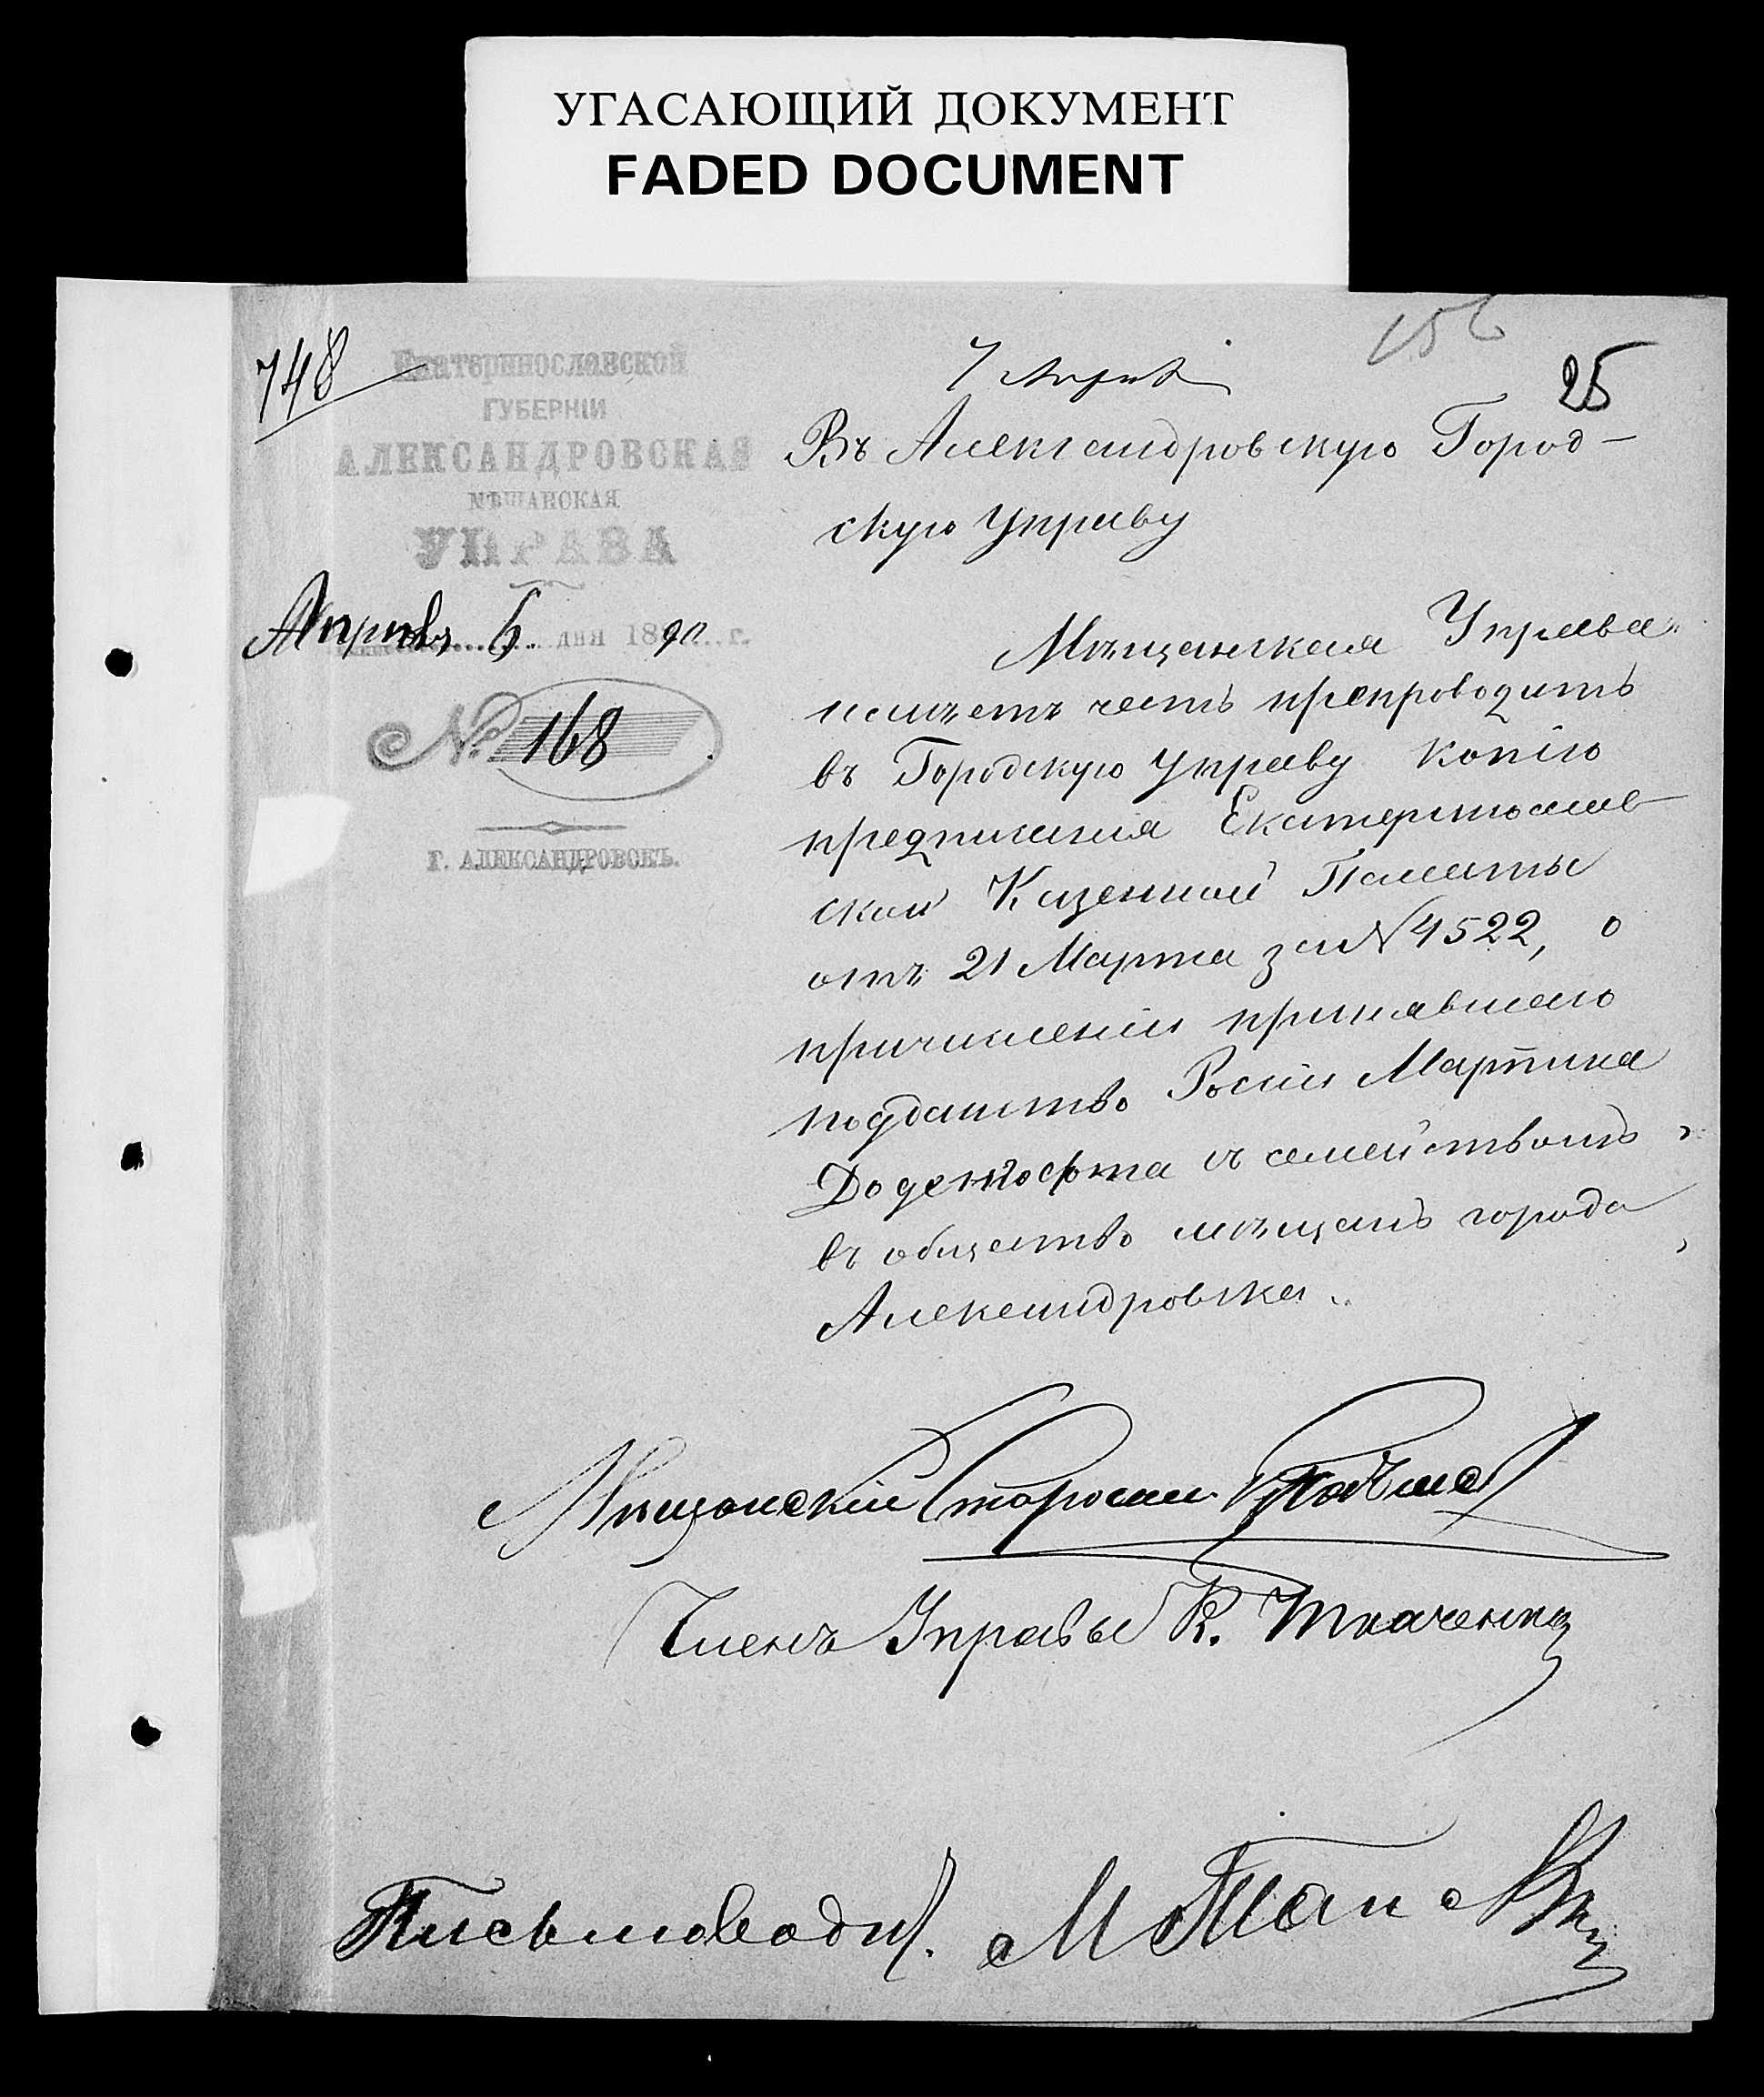 УГАСАЮЩИЙ ДОКУМЕНТ
FADED DOCUMENT
748
156
25
Екатеринославской
ГУБЕРНІИ
АЛЕКСАНДРОВСКАЯ
МѢЩАНСКАЯ
УПРАВА
Апрѣля 6 дня 1890 г.
№ 168
Г. АЛЕКСАНДРОВСКЪ.
7 Апрѣля
Въ Александровскую Город-
скую Управу
Мѣщанская Управа
имѣетъ честь препроводить
въ Городскую Управу копію
предписанія Екатеринослав-
ской Казенной Палаты
отъ 21 Марта за № 4522, о
причисленіи принявшаго
подданство Росіи Мартина
съ семействомъ
въ общество мѣщанъ города
Александровска.
Мѣщанскій Староста
Членъ Управы К. Ткаченко
Письмовод. М